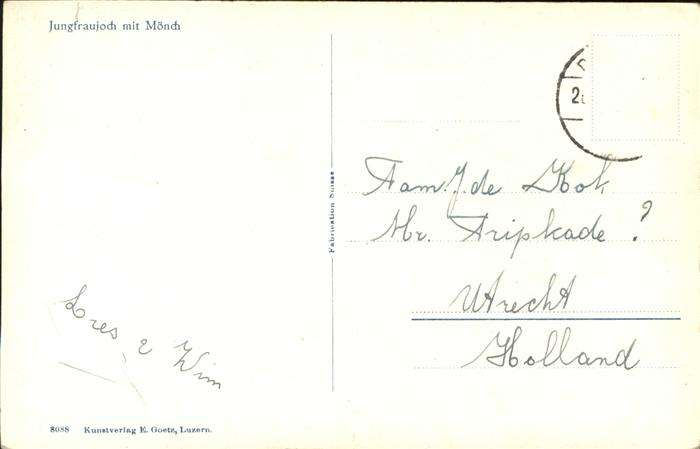 Jungfraujoch mit Mönch
2
Fabrication Suisse
Fam. J. de Kok
Mr. Tripkade ?
Utrecht
Holland
Lres e Wim
8088 Kunstverlag E. Goetz, Luzern.